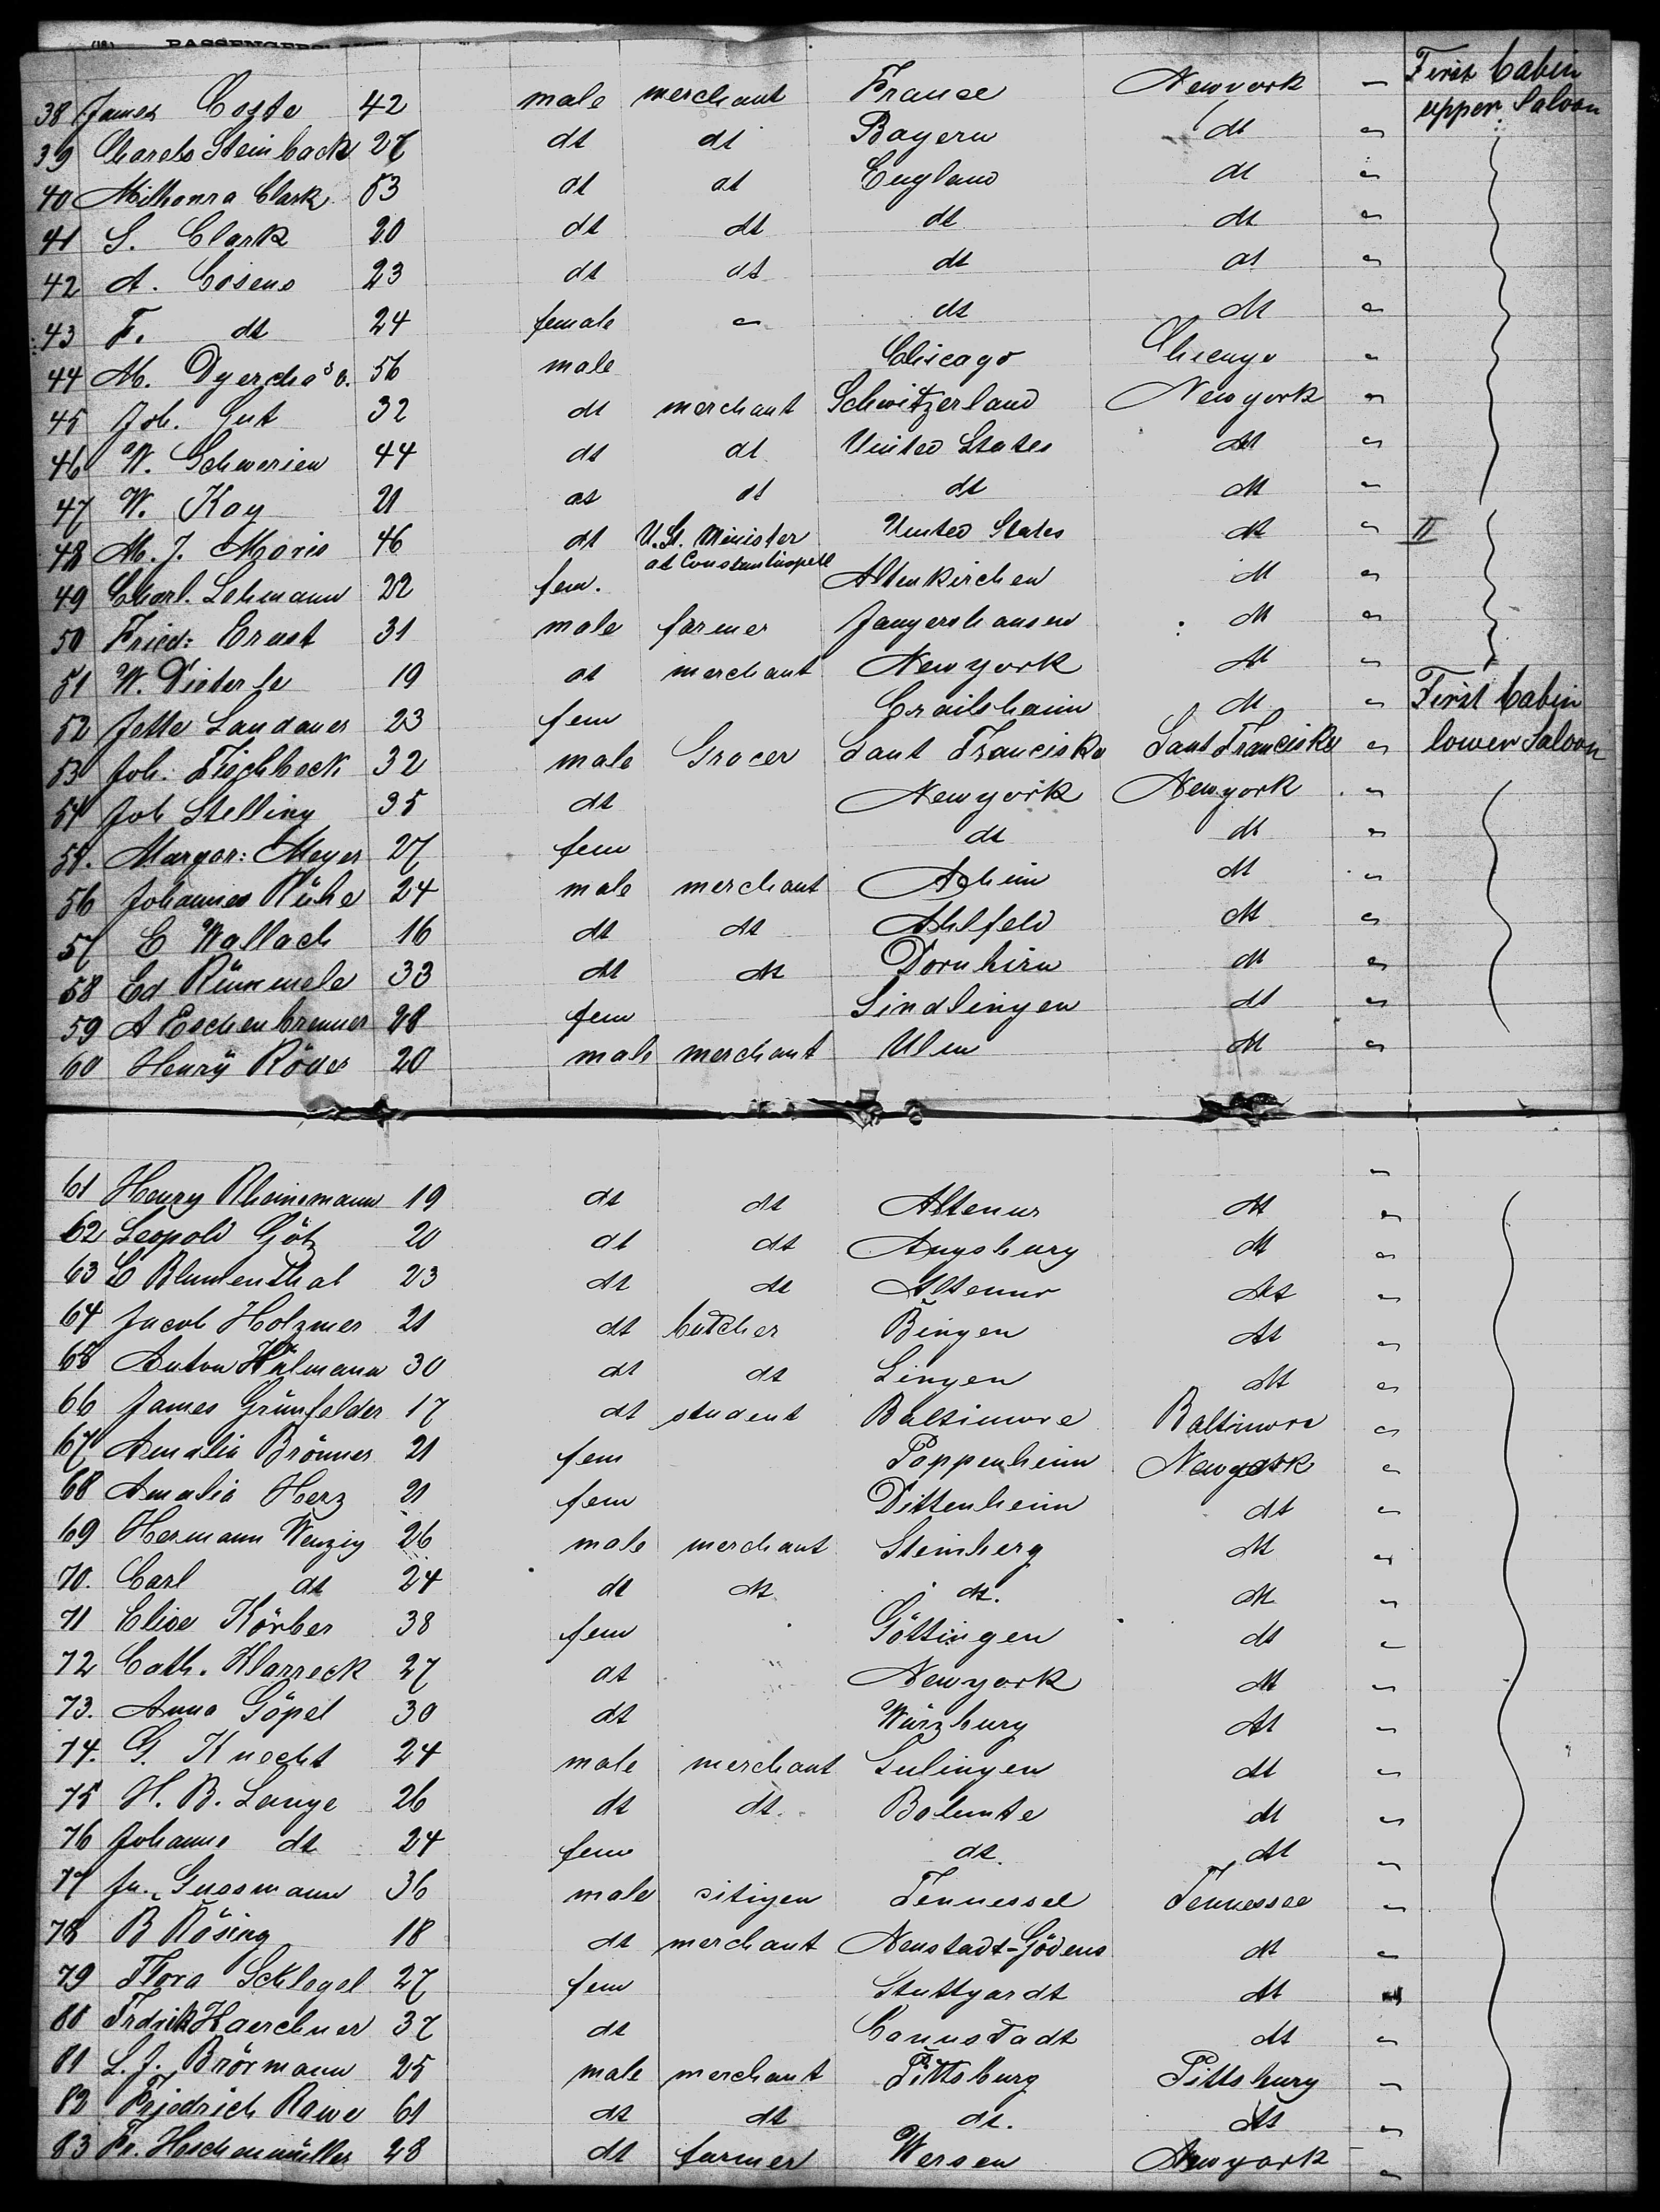 (18) PASSENGERS LIST
38 James Coste 42 male merchant France Newyork " First Cabin upper Saloon
39 Charels Steinback 27 dt dt Bayern dt "
40 Clark 53 dt dt England dt "
41 S. Clark 20 dt dt dt dt "
42 A. Cosens 23 dt dt dt dt "
43 F. dt 24 female " dt dt "
44 M. 56 male Chicago Chicago "
45 Joh. Gut 32 dt merchant Schwitzerland Newyork "
46 W. Schwerien 44 dt dt United States dt "
47 W. Kay 21 dt dt dt dt "
48 M. J. Moris 46 dt U. St. Minister at Constantinopell United States dt " II
49 Charl. Lehmann 22 fem. Altenkirchen dt "
50 Fried: Ernst 31 male farmer Jangershausen dt "
51 W. Dieterle 19 dt merchant Newyork dt "
52 Jette Landauer 23 fem Crailsheim dt " First Cabin
53 Joh. Fischbeck 32 male Grocer Sant Francisko Sant Francisko " lower Saloon
54 Joh Stelling 35 dt Newyork Newyork "
55. Margar: Meyer 27 fem dt dt "
56 Johannes Rühe 24 male merchant Achim dt "
57 E Wallach 16 dt dt Ahlfeld dt "
58 Ed Rümmele 33 dt dt Dornhirn dt "
59 A Eschenbrenner 28 fem Sindlingen dt "
60 Henry Röder 20 male merchant Ulm dt "
61 Henry Rheinemann 19 dt dt Altenur dt "
62 Leopold Götz 20 dt dt Augsburg dt "
63 E Blumenthal 23 dt dt Altenur dt "
64 Jacob Holzmer 21 dt butcher Bingen dt "
65 Anton Hülmann 30 dt dt Lingen dt "
66 James Grünfelder 17 dt student Baltimore Baltimore "
67 Amalia Brönner 21 fem Pappenheim Newyork "
68 Amalia Herz 21 fem Dittenheim dt "
69 Hermann Wenzig 26 male merchant Steinberg dt "
70. Carl dt 24 dt dt dt. dt "
71 Elise Körber 38 fem Göttingen dt "
72 Cath. Klarreck 27 dt Newyork dt "
73. Anna Göpel 30 dt Würzburg dt "
74. G. Knecht 24 male merchant Sulingen dt "
75 H. B. Lange 26 dt dt. Bolumte dt "
76 Johanne dt 24 fem dt. dt "
77 Ju. Gussmann 36 male sitigen Tennessee Tennessee "
78 B Rösing 18 dt merchant Neustadt-Gödens dt "
79 Flora Schlegel 27 fem Stuttgardt dt "
80 Fredrik Haerchner 37 dt Cannstadt dt "
81 L. J. Brörmann 25 male merchant Pittsburg Pittsburg "
82 Friedrich Rawe 61 dt dt dt. dt "
83 Fr. Heschenmüller 28 dt farmer Wersen Newyork "